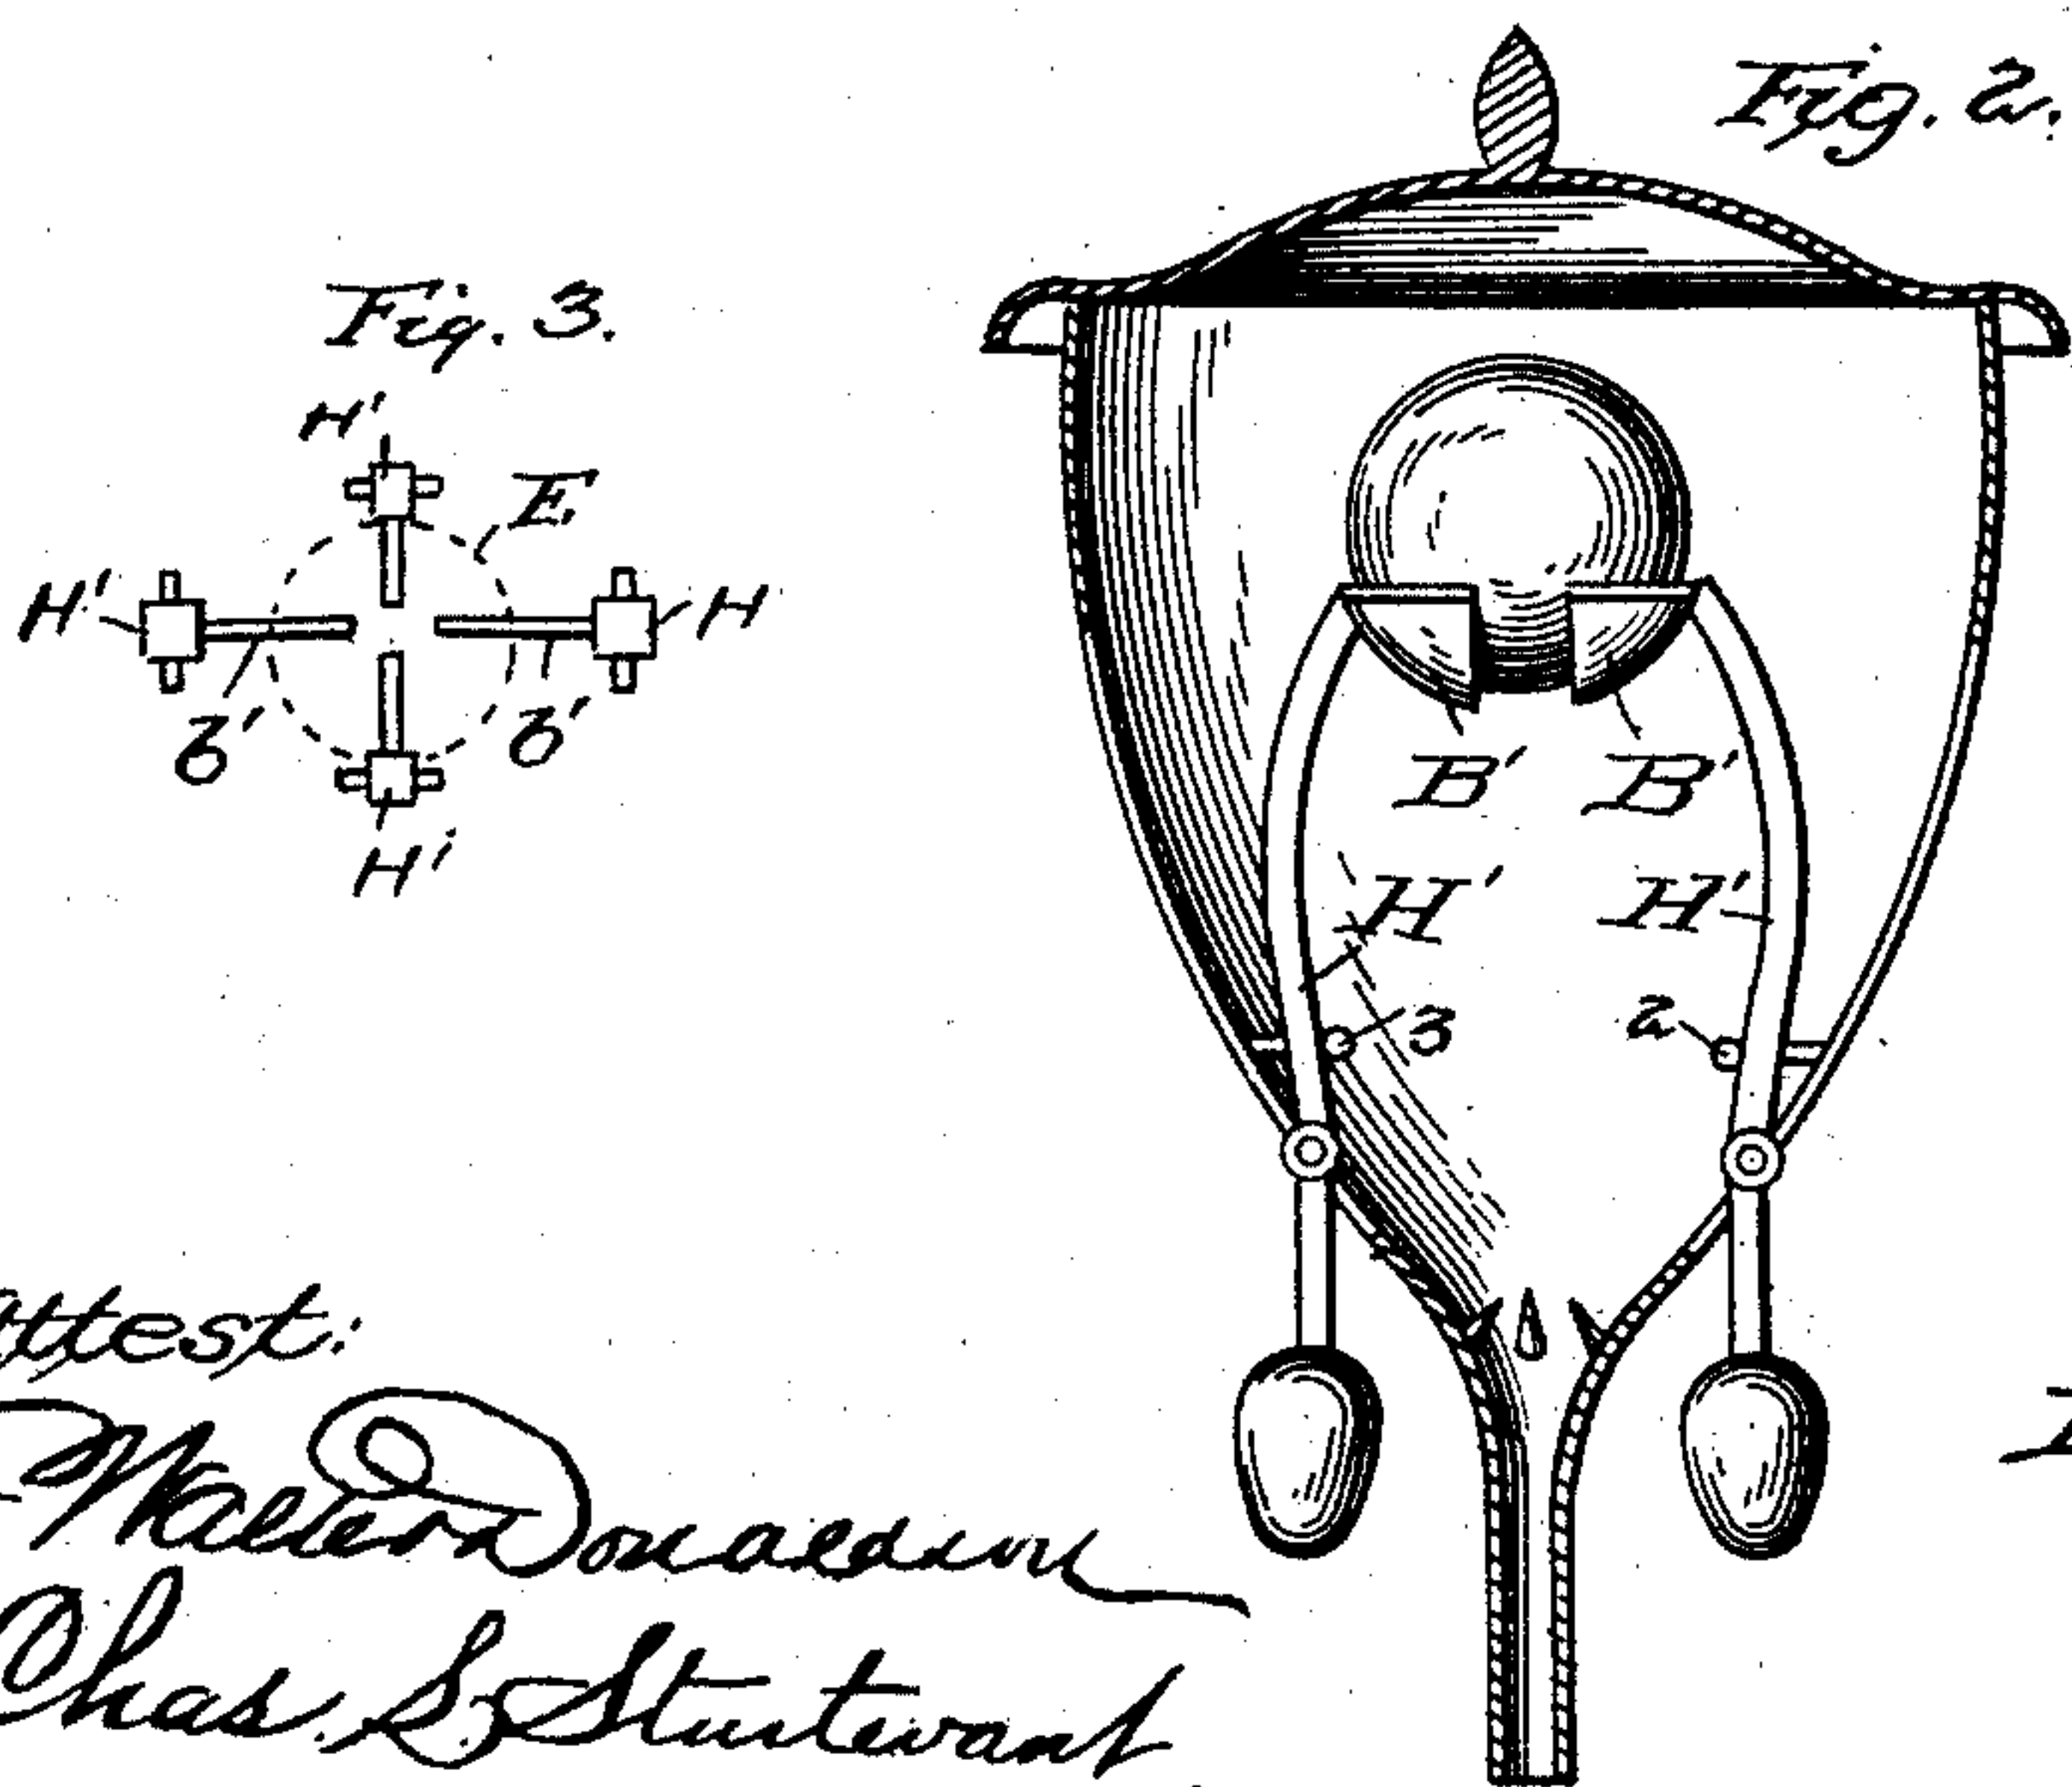 Fig. 2.
Fig. 3.
H'
E
H' H
b' b'
H'
B' B'
H' H'
3 2
Attest:
Walter Donaldson
Chas. S. Sturtevant